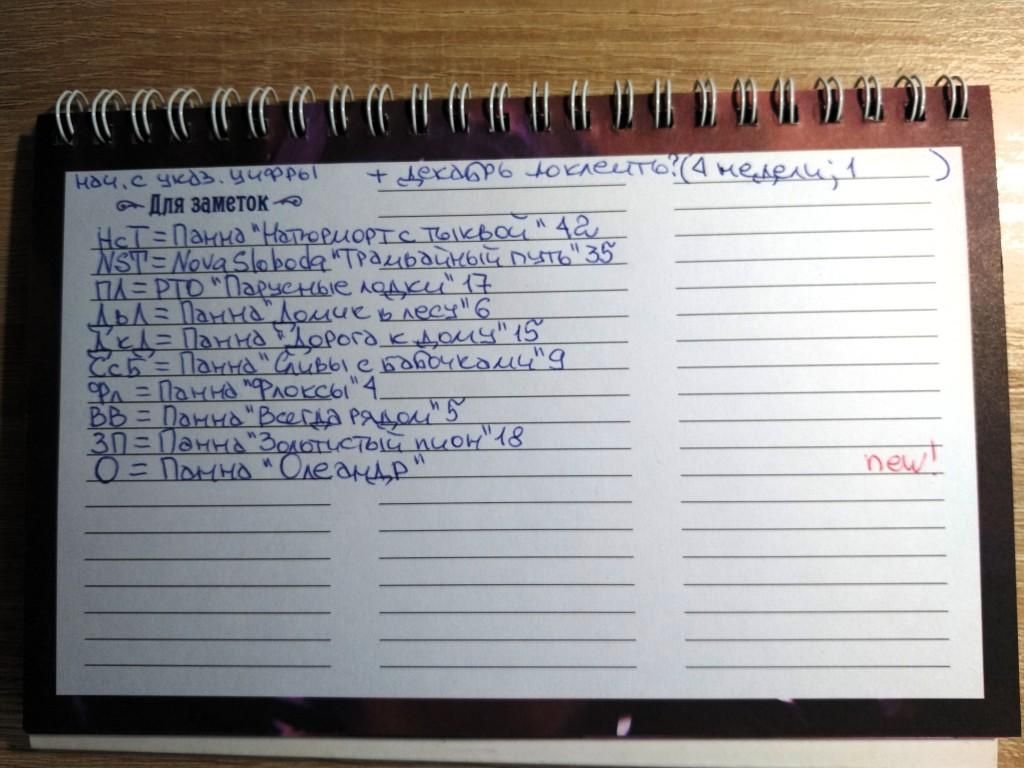 нач. с указ. цифры + декабрь доклеить? (4 недели; 1 )
Для заметок
НсТ = Панна "Натюрморт с тыквой" 42
NST = Nova Sloboda "Трамвайный путь" 35
ПЛ = РТО "Парусные лодки" 17
ДвЛ = Панна "Домик в лесу" 6
ДкД = Панна "Дорога к дому" 15
СсБ = Панна "Сливы с бабочками" 9
Фл = Панна "Флоксы" 4
ВВ = Панна "Всегда рядом" 5
ЗП = Панна "Золотистый пион" 18
О = Панна "Олеандр" new!